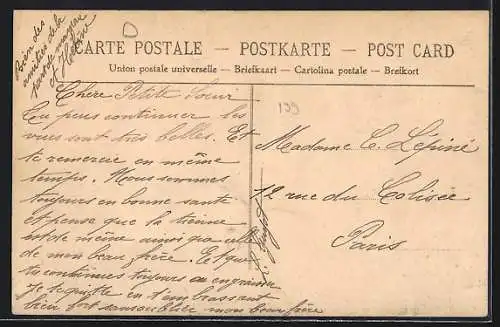 Bien des
amitiés de la
part de
et Hélène
CARTE POSTALE — POSTKARTE — POST CARD
Union postale universelle — Briefkaart — Cartolina postale — Brefkort
139
Chère Petite Soeur
Tu peux continuer les
vues sont très belles. Et
te remercie en même
temps. Nous sommes
toujours en bonne santé
et pense que la tienne
est de même ainsi que celle
de mon beau frère. Et que
tu continues toujours
Je te quitte en t'embrassant
bien fort sans oublier mon beau frère
Madame C. Lépine
12 rue du Colisée
Paris